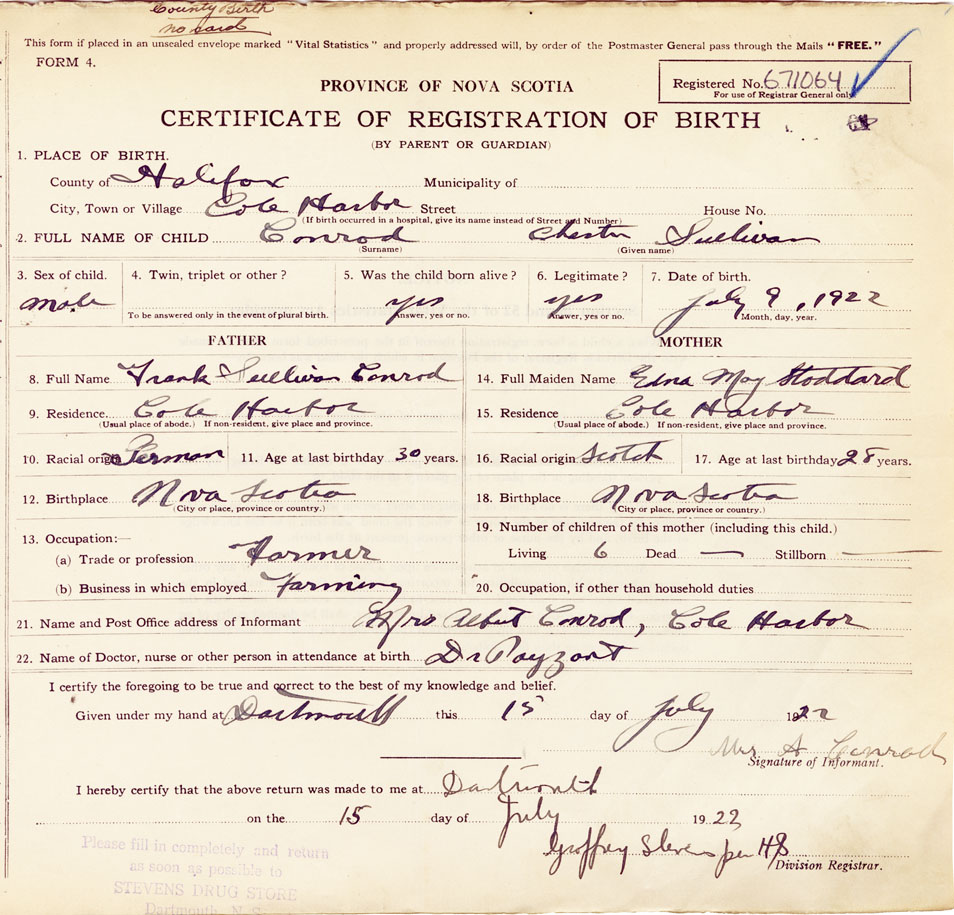 County Birth
no card
This form if placed in an unsealed envelope marked "Vital Statistics" and properly addressed will, by order of the Postmaster General pass through the Mails "FREE."
FORM 4.
PROVINCE OF NOVA SCOTIA
Registered No. 671064
For use of Registrar General only
CERTIFICATE OF REGISTRATION OF BIRTH
(BY PARENT OR GUARDIAN)
1. PLACE OF BIRTH.
County of Halifax Municipality of
City, Town or Village Cole Harbor Street House No.
(If birth occurred in a hospital, give its name instead of Street and Number)
2. FULL NAME OF CHILD Conrod Chester Sullivan
(Surname) (Given name)
3. Sex of child. 4. Twin, triplet or other? 5. Was the child born alive? 6. Legitimate? 7. Date of birth.
Male yes yes July 9, 1922
To be answered only in the event of plural birth. Answer, yes or no. Answer, yes or no. Month, day, year.
FATHER MOTHER
8. Full Name Frank Sullivan Conrod 14. Full Maiden Name Edna May Stoddard
9. Residence. Cole Harbor 15. Residence Cole Harbor
(Usual place of abode.) If non-resident, give place and province. (Usual place of abode.) If non-resident, give place and province.
10. Racial origin German 11. Age at last birthday 30 years. 16. Racial origin Scotch 17. Age at last birthday 28 years.
12. Birthplace Nova Scotia 18. Birthplace Nova Scotia
(City or place, province or country.) (City or place, province or country.)
13. Occupation:— 19. Number of children of this mother (including this child.)
(a) Trade or profession Farmer Living 6 Dead — Stillborn —
(b) Business in which employed Farming 20. Occupation, if other than household duties
21. Name and Post Office address of Informant Mrs Albert Conrod, Cole Harbor
22. Name of Doctor, nurse or other person in attendance at birth Dr Payzant
I certify the foregoing to be true and correct to the best of my knowledge and belief.
Given under my hand at Dartmouth this 15 day of July 1922
Mrs A Conrod
Signature of Informant.
I hereby certify that the above return was made to me at Dartmouth
on the 15 day of July 1922
Geoffrey Stevens per HS
Division Registrar.
Please fill in completely and return
as soon as possible to
STEVENS DRUG STORE
Dartmouth, N.S.